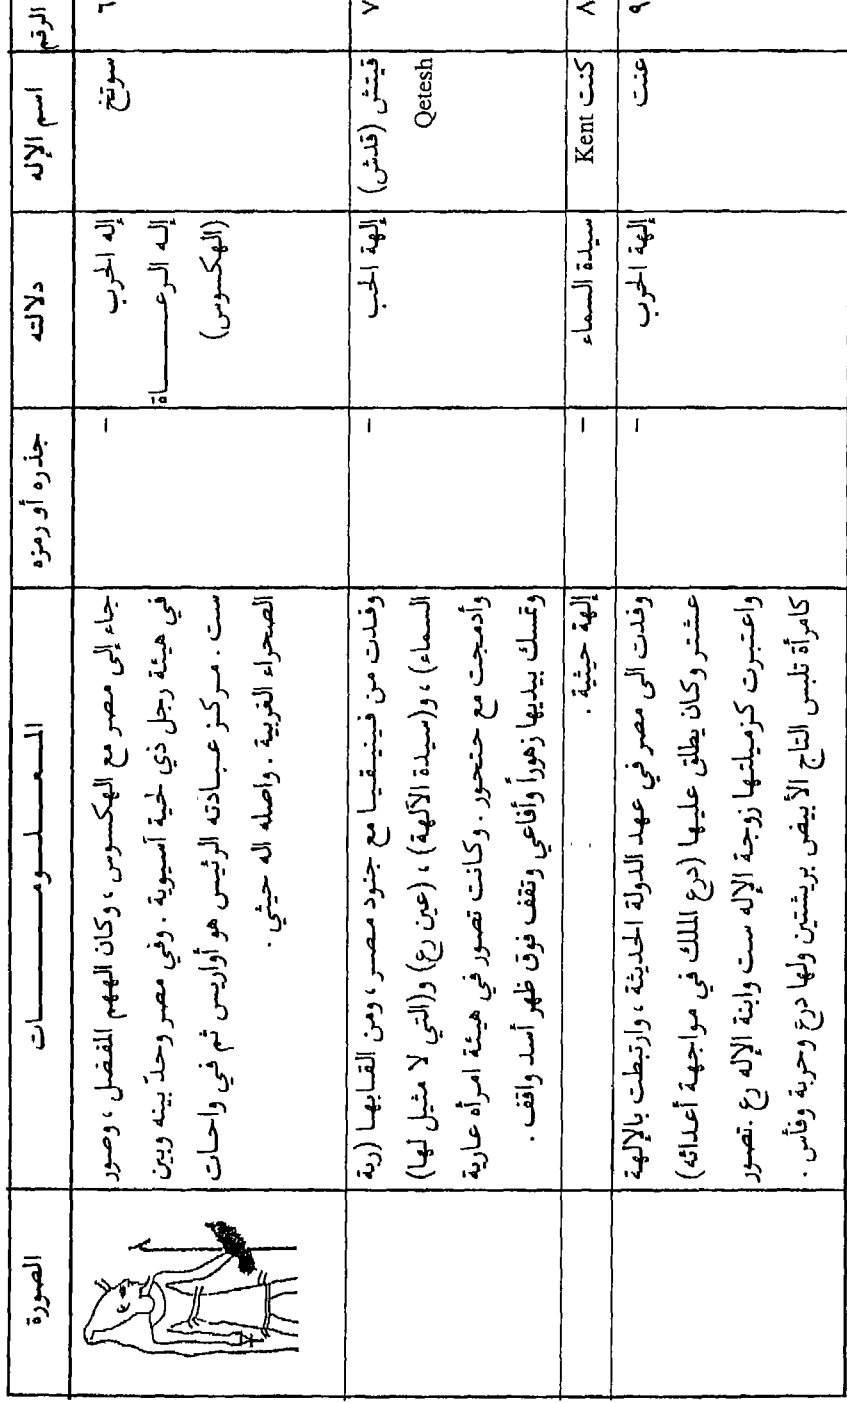 الرقم
اسم الإله
دلالته
جذره أو رمزه
المعلومات
الصورة
٦
سوتخ
إله الحرب
إله الرعاة
(الهكسوس)
–
جاء إلى مصر مع الهكسوس ، وكان الههم المفضل ، وصور
في هيئة رجل ذي لحية آسيوية . وفي مصر وحدّ بينه وبين
ست . مركز عبادته الرئيس هو أواريس ثم في واحات
الصحراء الغربية . واصله اله حيثي .
٧
قيتش (قدش)
Qetesh
إلهة الحب
–
وفدت من فينيقيا مع جنود مصر ، ومن القابها (ربة
السماء) ، و(سيدة الآلهة) ، (عين رع) و(التي لا مثيل لها)
وأدمجت مع حتحور . وكانت تصور في هيئة امرأه عارية
وتمسك بيديها زهوراً وأفاعي وتقف فوق ظهر أسد واقف .
٨
كنت Kent
سيدة السماء
–
إلهة حيثية .
٩
عنت
إلهة الحرب
–
وفدت الى مصر في عهد الدولة الحديثة ، وارتبطت بالإلهة
عشتر وكان يطلق عليها (درع الملك في مواجهة أعدائه)
واعتبرت كزميلتها زوجة الإله ست وابنة الإله رع .تصور
كامرأة تلبس التاج الأبيض بريشتين ولها درع وحربة وفأس .